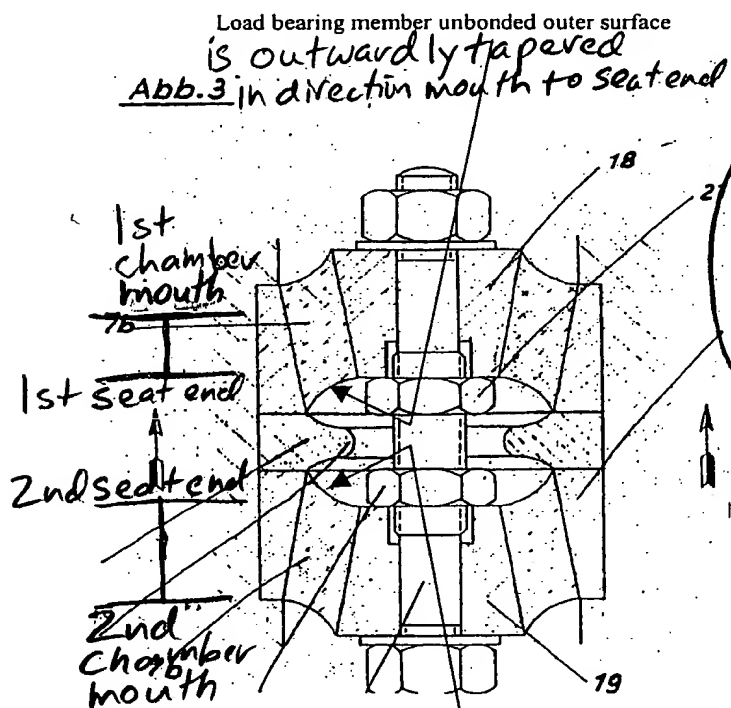 Load bearing member unbonded outer surface
is outwardly tapered
Abb.3 in direction mouth to seat end
18
1st
chamber
mouth
1st seat end
2nd seat end
2nd
chamber
mouth
19